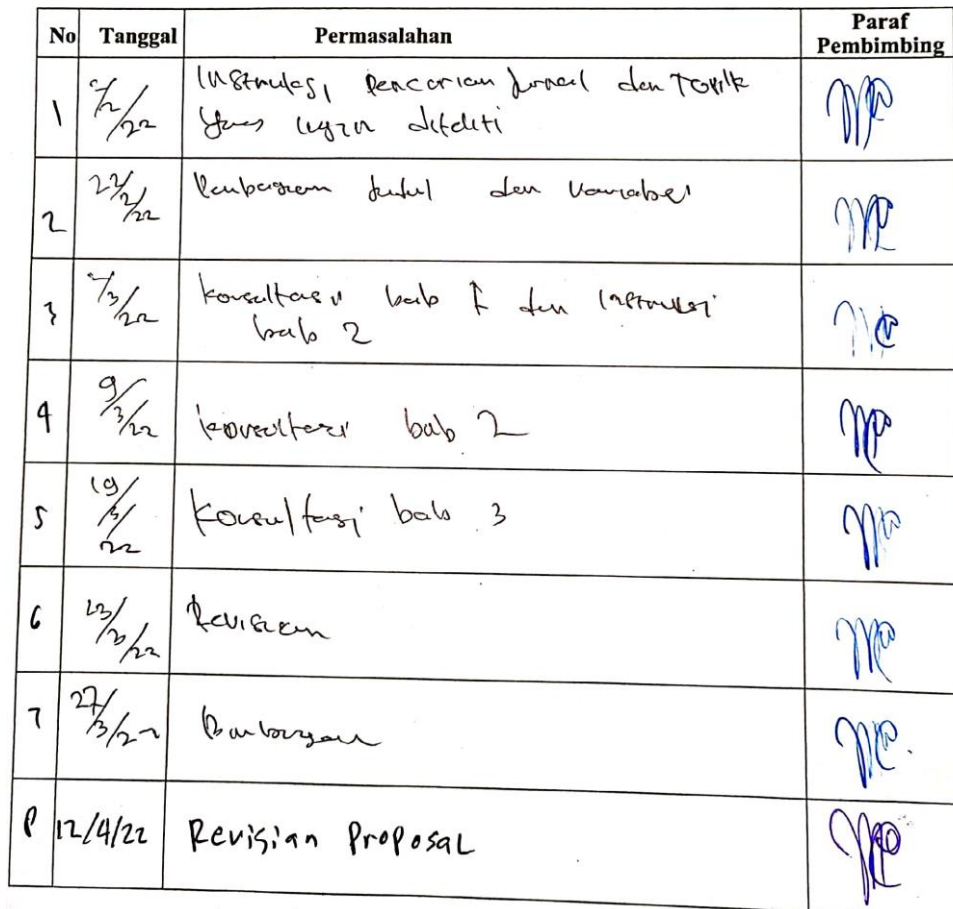 No Tanggal Permasalahan Paraf Pembimbing
1 7/2/22 Instruksi, Pencarian Jurnal dan Topik
yang ingin diteliti
2 22/2/22 judul dan Variabel
3 7/3/22 konsultasi bab 1 dan Instruksi
bab 2
4 9/3/22 konsultasi bab 2
5 19/3/22 Konsultasi bab 3
6 23/3/22 Revisian
7 27/3/22 Bimbingan
8 12/4/22 Revisian Proposal